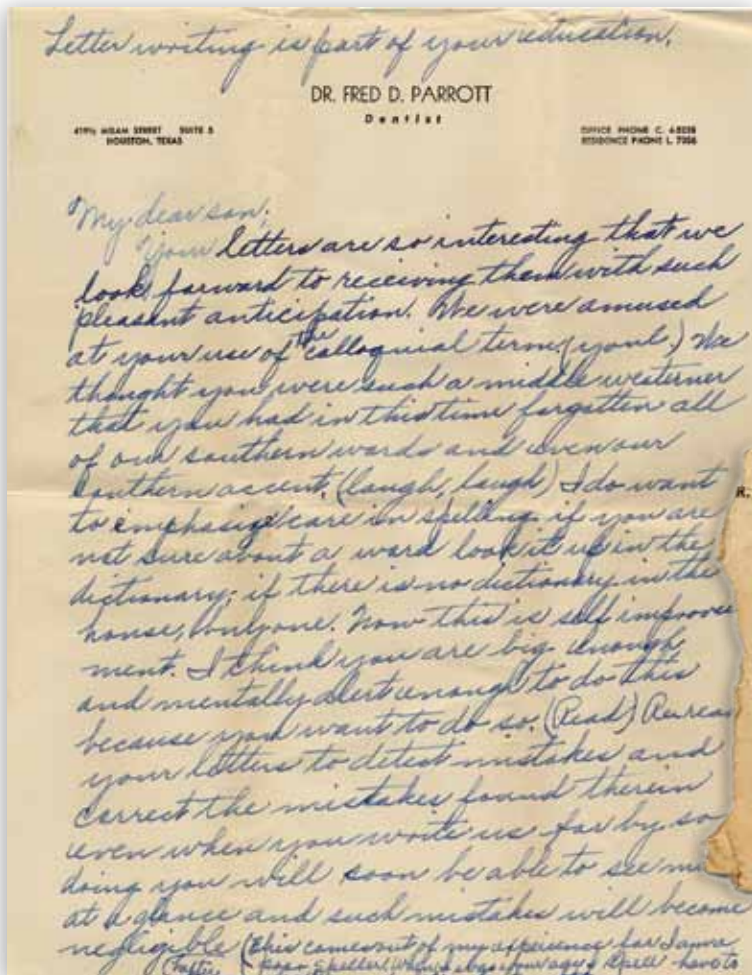 Letter writing is part of your education.
DR. FRED D. PARROTT
Dentist
419½ MILAM STREET SUITE 5
HOUSTON, TEXAS
OFFICE PHONE C.
RESIDENCE PHONE L. 7056
My dear son,
Your letters are so interesting that we
look forward to receiving them with such
pleasant anticipation. We were amused
at your use of the colloquial term (youl) We
thought you were such a middle westerner
that you had in this time forgotten all
of our southern words and even our
southern accent. (laugh, laugh) I do want
to emphasize care in spelling if you are
not sure about a word look it up in the
dictionary; if there is no dictionary in the
house, buy one. Now this is self improve
ment. I think you are big enough
and mentally alert enough to do this
because you want to do so. (Read) Reread
your letters to detect mistakes and
correct the mistakes found therein
even when you write us for by so
doing you will soon be able to see
at a glance and such mistakes will become
negligible (this comes out of my experience for I am a
poor speller when I was your age
have to
R.